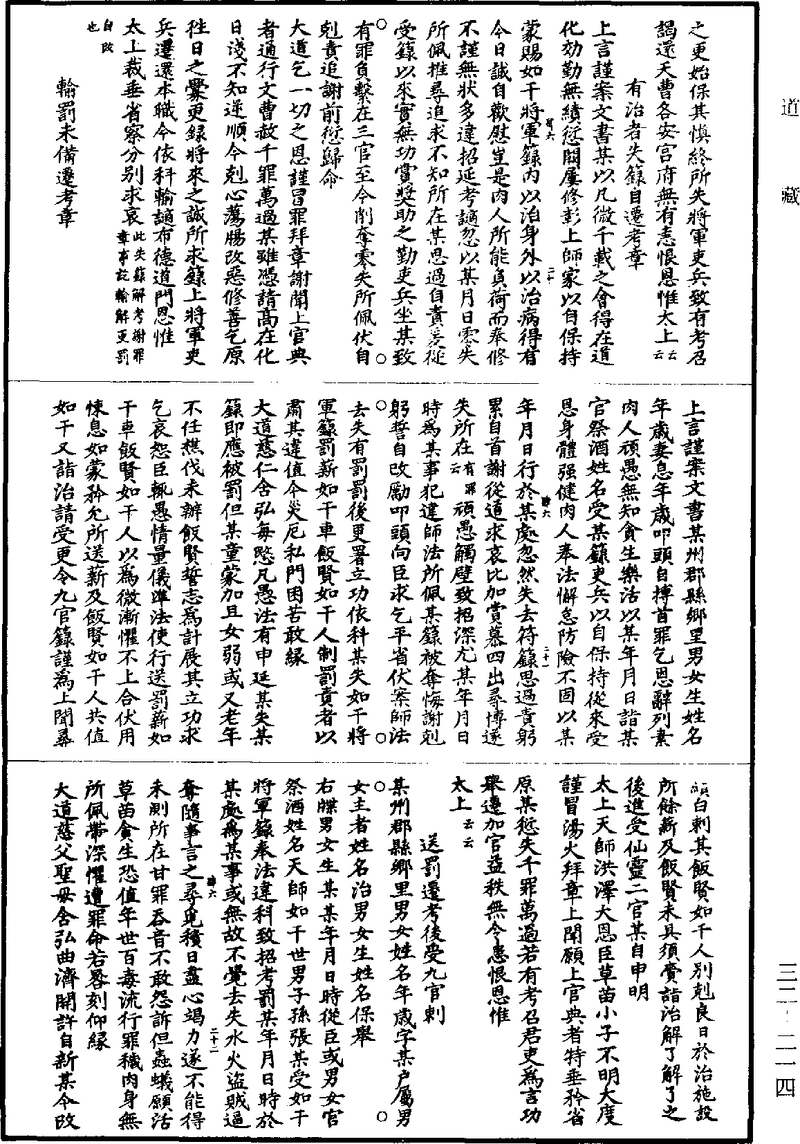 道藏
之更始保其慎終所失將軍吏兵致有考召
謁還天曹各安宮府無有恚恨恩惟太上云云
有治者失籙自遷考章
上言謹案文書某以凡微千載之會得在道
化効勤無績愆闕屢修彰上師家以自保持
蒙賜如干將軍籙內以治身外以治病得者
今日誠自歡慰豈是肉人所能負荷而奉修
不謹無狀多違招延考謫忽以某月日零失
所佩推尋追求不知所在某思過自責爰從
受籙以來實無功賞獎助之勤吏兵坐某致
有罪負繫在三官至今削奪零失所佩伏自
剋責追謝前愆歸命
大道乞一切之恩謹冒罪拜章謝聞上官典
者通行文曹赦千罪萬過某雖憑請高在化
日淺不知逆順今剋心蕩腸改惡修善乞原
往日之舋更錄將來之誠所求籙上將軍吏
兵還還本職今依科輸謫布德道門恩惟
太上裁垂省察分別求哀此失籙解考謝罪章事訖輸解更罰
自改也
輸罰未備遷考章
上言謹案文書某州郡縣鄉里男女生姓名
年歲妻息年歲叩頭自搏首罪乞恩辭列素
肉人頑愚無知貪生樂活以某年月日詣某
官祭酒姓名受某籙吏兵以自保持從來受
恩身體强健肉人奉法懈怠防險不固以某
年月日行於某處忽然失去符籙思過責躬
累自首謝從道求哀比加賞募四出尋博遂
失所在云有罪頑愚觸壁致招深尤某年月日
時爲某事犯違師法所佩某籙被奪悔謝剋
躬誓自改勵叩頭向臣求乞平省伏案師法
去失有罰罰後更署立功依科某失如干將
軍籙罰薪如干車飯賢如干人制罰責者以
肅其違值今災厄私門困苦敢緣
大道慈仁含弘每愍凡愚法有申延某失某
籙即應被罰但某童蒙加且女弱或又老年
不任樵伐未辦飯賢誓志爲計展其立功求
乞哀怨臣輒愚情量儀準法使行送罰薪如
干車飯賢如干人以爲微漸懼不上合伏用
悚息如蒙矜允所送薪及飯賢如干人共值
如干又詣治請受更令九官籙謹爲上聞尋
頭白剌其飯賢如干人別剋良日於治施設
所餘薪及飯賢未具須齎詣治解了解了之
後進受仙靈二官某自申明
太上天師洪澤大恩臣草苗小子不明大度
謹冒湯火拜章上聞願上官典者特垂矜省
原某愆失千罪萬過若有考召君吏爲言功
舉遷加官益秩無令恚恨恩惟
太上云云
送罰還考後受九官刺
某州郡縣鄉里男女姓名年歲字某户屬男
女主者姓名治男女生姓名保舉
右牒男女生某某年月日時從臣或男女官
祭酒姓名天師如干世男子孫張某受如干
將軍籙奉法違科致招考罰某年月日時於
某處爲某事或無故不覺去失水火盜賊逼
奪隨事言之尋覓積日盡心竭力遂不能得
未測所在甘罪吞音不敢怨訴但蟲蟻願活
草苗貪生恐值年世百毒流行罪穢肉身無
所佩帶深懼遭罪命若晷刻仰緣
大道慈父聖母含弘曲濟開許自新某今改
三二-二一四